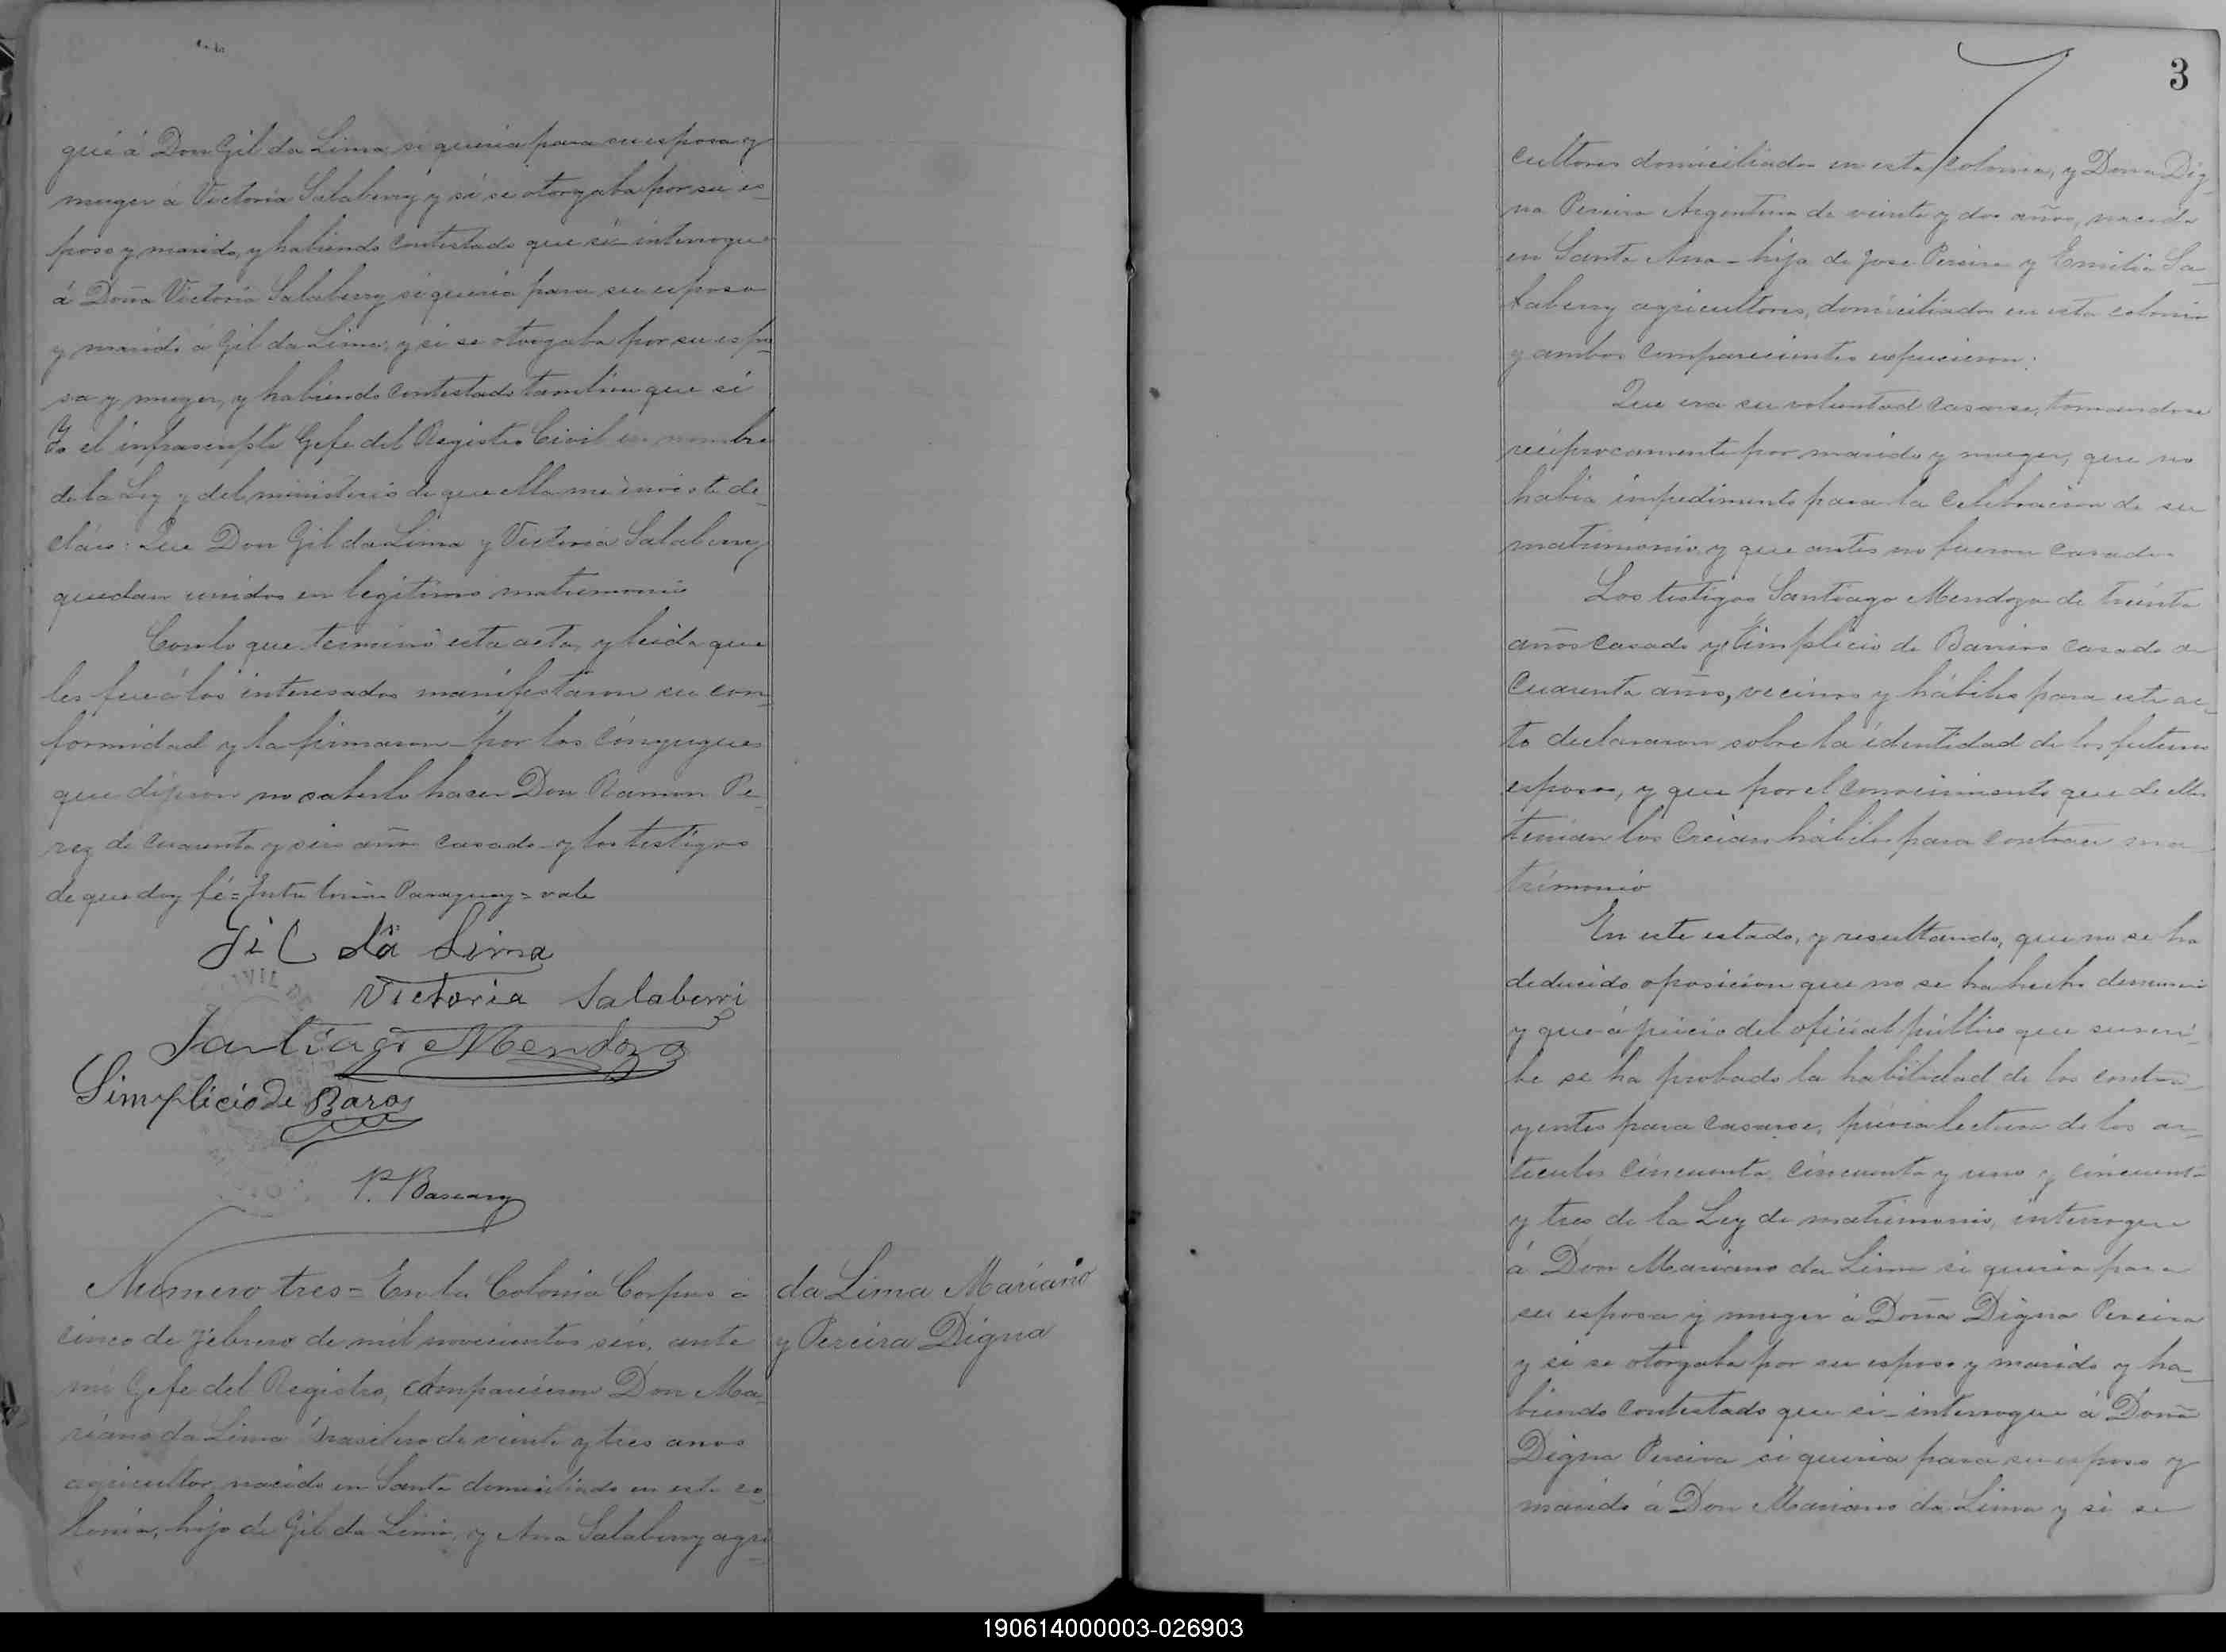 gué á Don Gil da Lima si queria para su esposa y
muger á Victoria Salaberry y si se otorgaba por su es-
poso y marido, y habiendo contestado que si interrogue
á Doña Victoria Salaberry si queria para su esposo
y marido á Gil da Lima, y si se otorgaba por su espo-
sa y muger, y habiendo contestado tambien que si
Yo el infrascripto Gefe del Registro Civil en nombre
de la Ley y del ministerio de que ella me inviste de-
cláro: Que Don Gil da Lima y Victoria Salaberry
quedan unidos en legitimo matrimonio
Con lo que terminó esta acta, y leida que
les fué á los interesados manifestaron su con-
formidad y la firmaron por los cónyugues
que dijeron no saberlo hacer Don Ramon Pe-
rez de cuarenta y seis años casado y los testigos
de que doy fé = Entre lineas Paraguay = vale
Gil da Lima
Victoria Salaberri
Santiago Mendoza
Simplicio de Baros
P. Bascary
Número tres = En la Colonia Corpus á
cinco de Febrero de mil novecientos seis, ante
mi Gefe del Registro, comparecieron Don Ma-
riano da Lima Brasilero de veinte y tres anos
agricultor nacido en Santa domiciliado en esta co-
lonia, hijo de Gil da Lima, y Ana Salaberry agri-
da Lima Mariano
y Pereira Digna
3
cultores domiciliados en esta colonia, y Doña Dig-
na Pereira Argentina de veinte y dos años, nacida
en Santa Ana - hija de Jose Pereira y Emilia Sa-
laberry agricultores, domiciliados en esta colonia
y ambos comparecientes expusieron:
Que era su voluntad casarse, tomandose
reciprocamente por marido y muger, que no
habia impedimento para la celebracion de su
matrimonio y que antes no fueron casados
Los testigos Santiago Mendoza de treinta
años casado y Simplicio de Barrios casado de
cuarenta años, vecinos y hábiles para este ac-
to declararon sobre la identidad de los futuros
esposos, y que por el conocimiento que de ellos
tenian los creian hábiles para contraer ma-
trimonio
En este estado, y resultando, que no se ha
deducido oposicion que no se ha hecho denuncia
y que á juicio del oficial público que suscri-
be se ha probado la habilidad de los contra-
yentes para casarse, prévia lectura de los ar-
ticulos cincuenta, cincuenta y uno y cincuenta
y tres de la Ley de matrimonio, interrogue
á Don Mariano da Lima si queria para
su esposa y muger á Doña Digna Pereira
y si se otorgaba por su esposo y marido y ha-
biendo contestado que si - interrogue á Doña
Digna Pereira si queria para su esposo y
marido á Don Mariano da Lima y si se
190614000003-026903